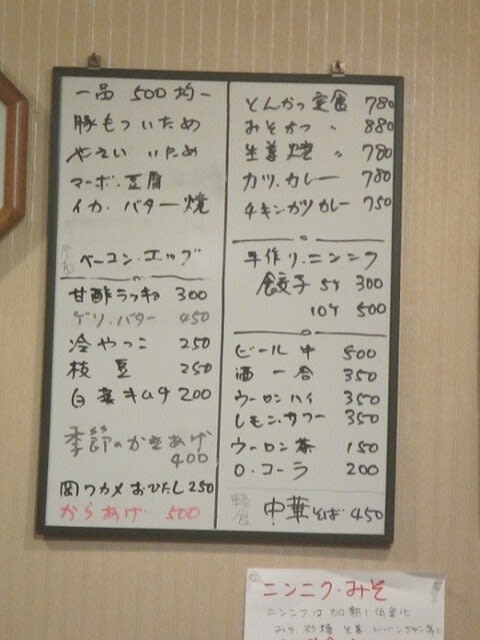 一品 500均一
豚もついため
やさいいため
マーボ・豆腐
イカ・バター焼
ベーコン・エッグ
甘酢ラッキョ 300
ゲソ・バター 450
冷やっこ 250
枝豆 250
白菜キムチ 200
季節のかきあげ
400
岡ワカメおひたし 250
からあげ 500
とんかつ定食 780
みそかつ 〃 880
生姜焼 〃 780
カツ・カレー 780
チキン・カツカレー 750
手作り・ニンニク
餃子 5ケ 300
10ケ 500
ビール 中 500
酒 一合 350
ウーロンハイ 350
レモン・サワー 350
ウーロン茶 150
O・コーラ 200
軽食 中華そば 450
ニンニク・みそ
ニンニクは加熱し低臭化
みそ 砂糖 生姜